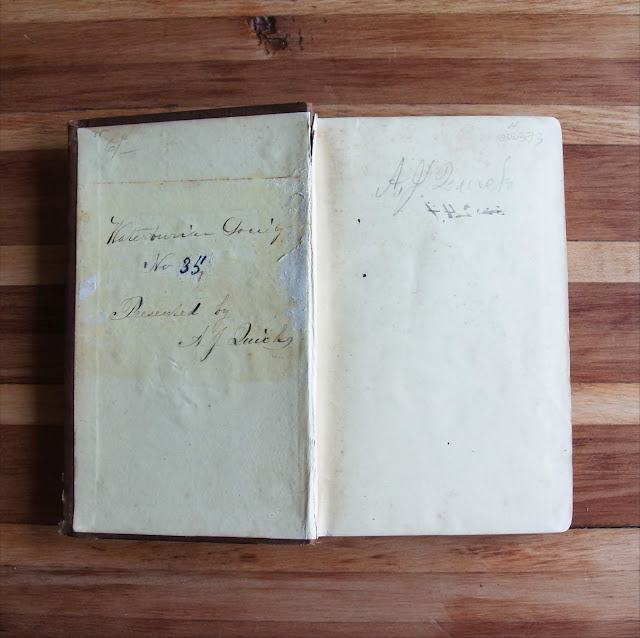 6/-
Waterburian Society
No 35
Presented by
A J Quick
A. J. Quick